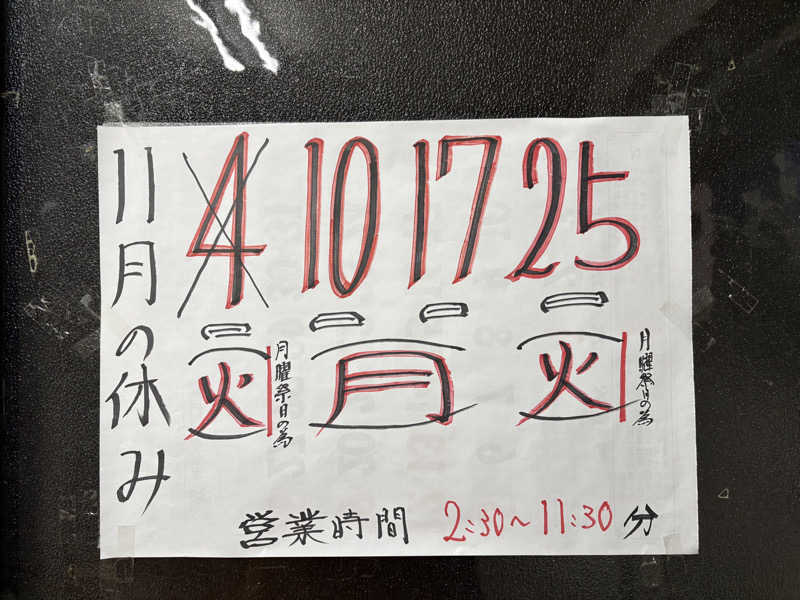 11月の休み
4 10 17 25
(火) (月) (火)
月曜祭日の為
月曜祭日の為
営業時間 2:30~11:30分